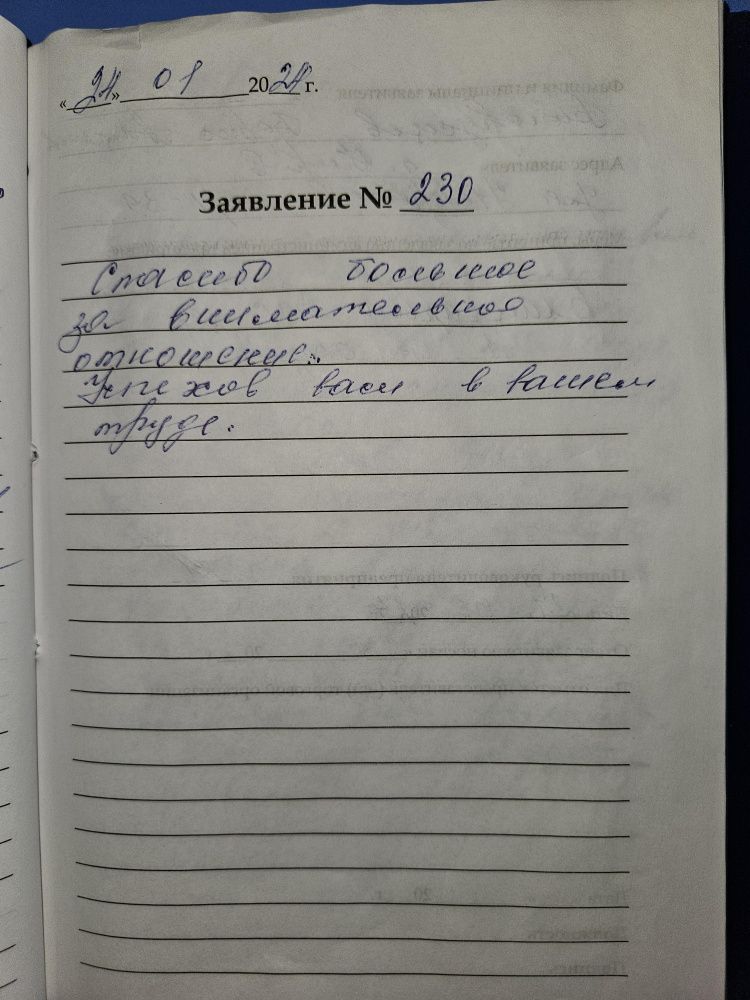 « 24 » 01 2024 г.
Заявление № 230
Спасибо большое
за внимательное
отношение.
Успехов вам в вашем
труде.